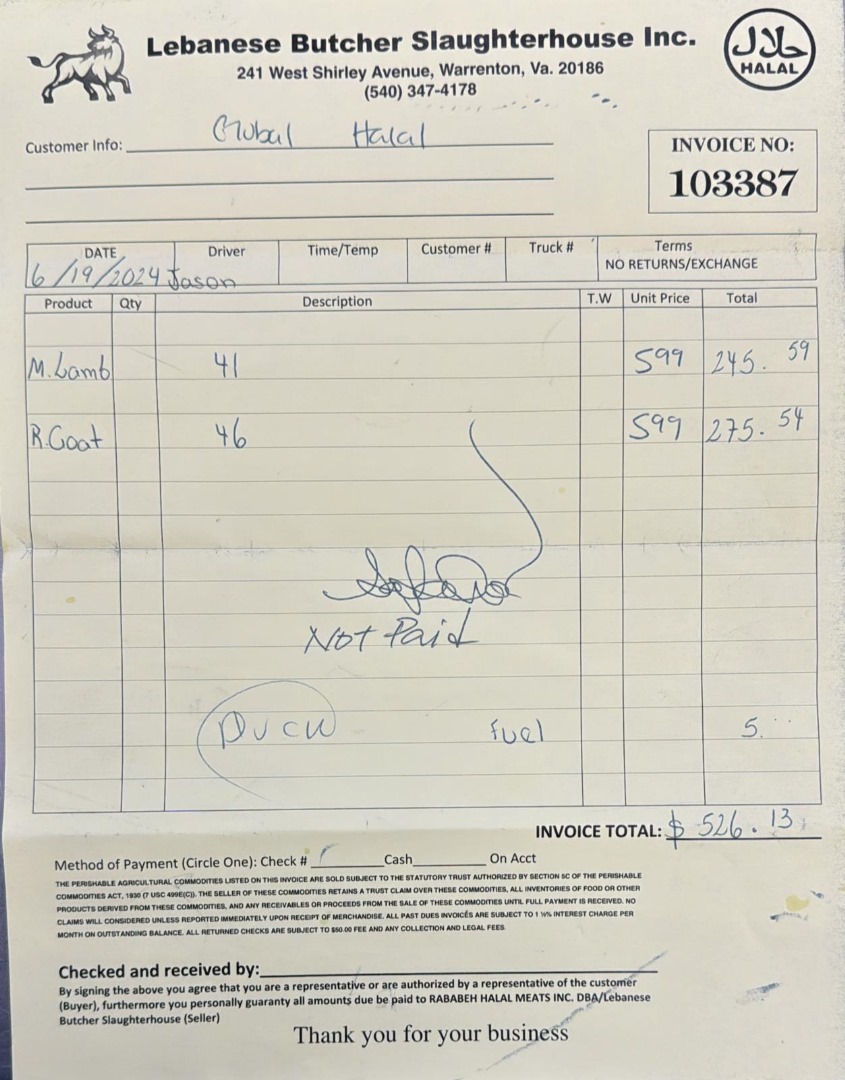 Lebanese Butcher Slaughterhouse Inc.
241 West Shirley Avenue, Warrenton, Va. 20186
(540) 347-4178
حلال
HALAL
Customer Info: Global Halal
INVOICE NO:
103387
DATE Driver Time/Temp Customer # Truck # Terms
6/19/2024 Jason NO RETURNS/EXCHANGE
Product Qty Description T.W Unit Price Total
M.Lamb 41 599 245.59
R.Goat 46 599 275.54
Not Paid
Fuel 5.
INVOICE TOTAL: $ 526.13
Method of Payment (Circle One): Check # Cash On Acct
THE PERISHABLE AGRICULTURAL COMMODITIES LISTED ON THIS INVOICE ARE SOLD SUBJECT TO THE STATUTORY TRUST AUTHORIZED BY SECTION 5C OF THE PERISHABLE
COMMODITIES ACT, 1930 (7 USC 499E(C)). THE SELLER OF THESE COMMODITIES RETAINS A TRUST CLAIM OVER THESE COMMODITIES, ALL INVENTORIES OF FOOD OR OTHER
PRODUCTS DERIVED FROM THESE COMMODITIES, AND ANY RECEIVABLES OR PROCEEDS FROM THE SALE OF THESE COMMODITIES UNTIL FULL PAYMENT IS RECEIVED. NO
CLAIMS WILL CONSIDERED UNLESS REPORTED IMMEDIATELY UPON RECEIPT OF MERCHANDISE. ALL PAST DUES INVOICES ARE SUBJECT TO 1 ½% INTEREST CHARGE PER
MONTH ON OUTSTANDING BALANCE. ALL RETURNED CHECKS ARE SUBJECT TO $50.00 FEE AND ANY COLLECTION AND LEGAL FEES
Checked and received by:
By signing the above you agree that you are a representative or are authorized by a representative of the customer
(Buyer), furthermore you personally guaranty all amounts due be paid to RABABEH HALAL MEATS INC. DBA/Lebanese
Butcher Slaughterhouse (Seller)
Thank you for your business